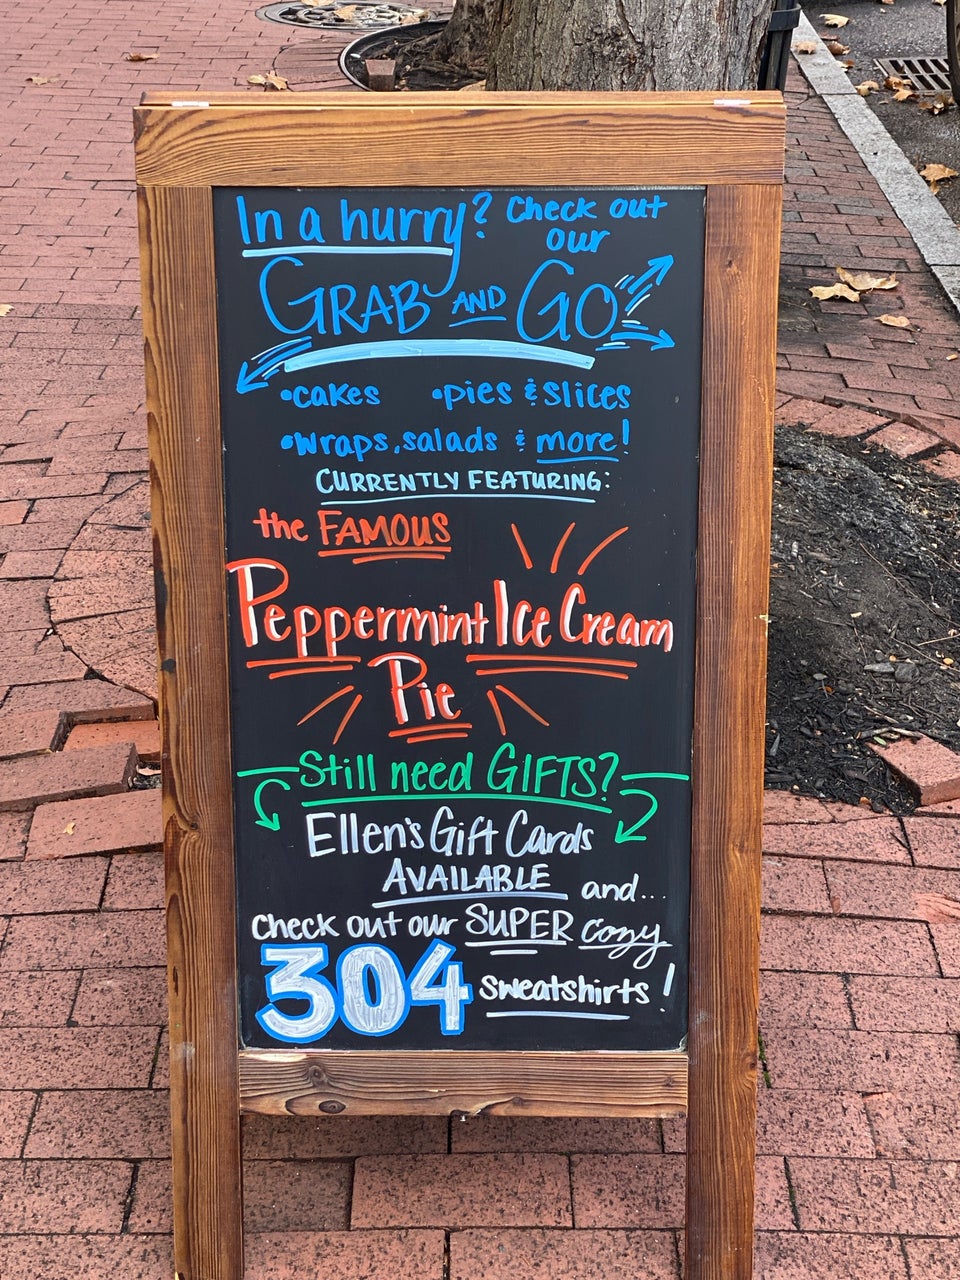 In a hurry? Check out
our
GRAB AND GO
•cakes •pies & slices
•wraps, salads & more!
CURRENTLY FEATURING:
the FAMOUS
Peppermint Ice Cream
Pie
Still need GIFTS?
Ellen's Gift Cards
AVAILABLE and...
Check out our SUPER cozy
304 sweatshirts!